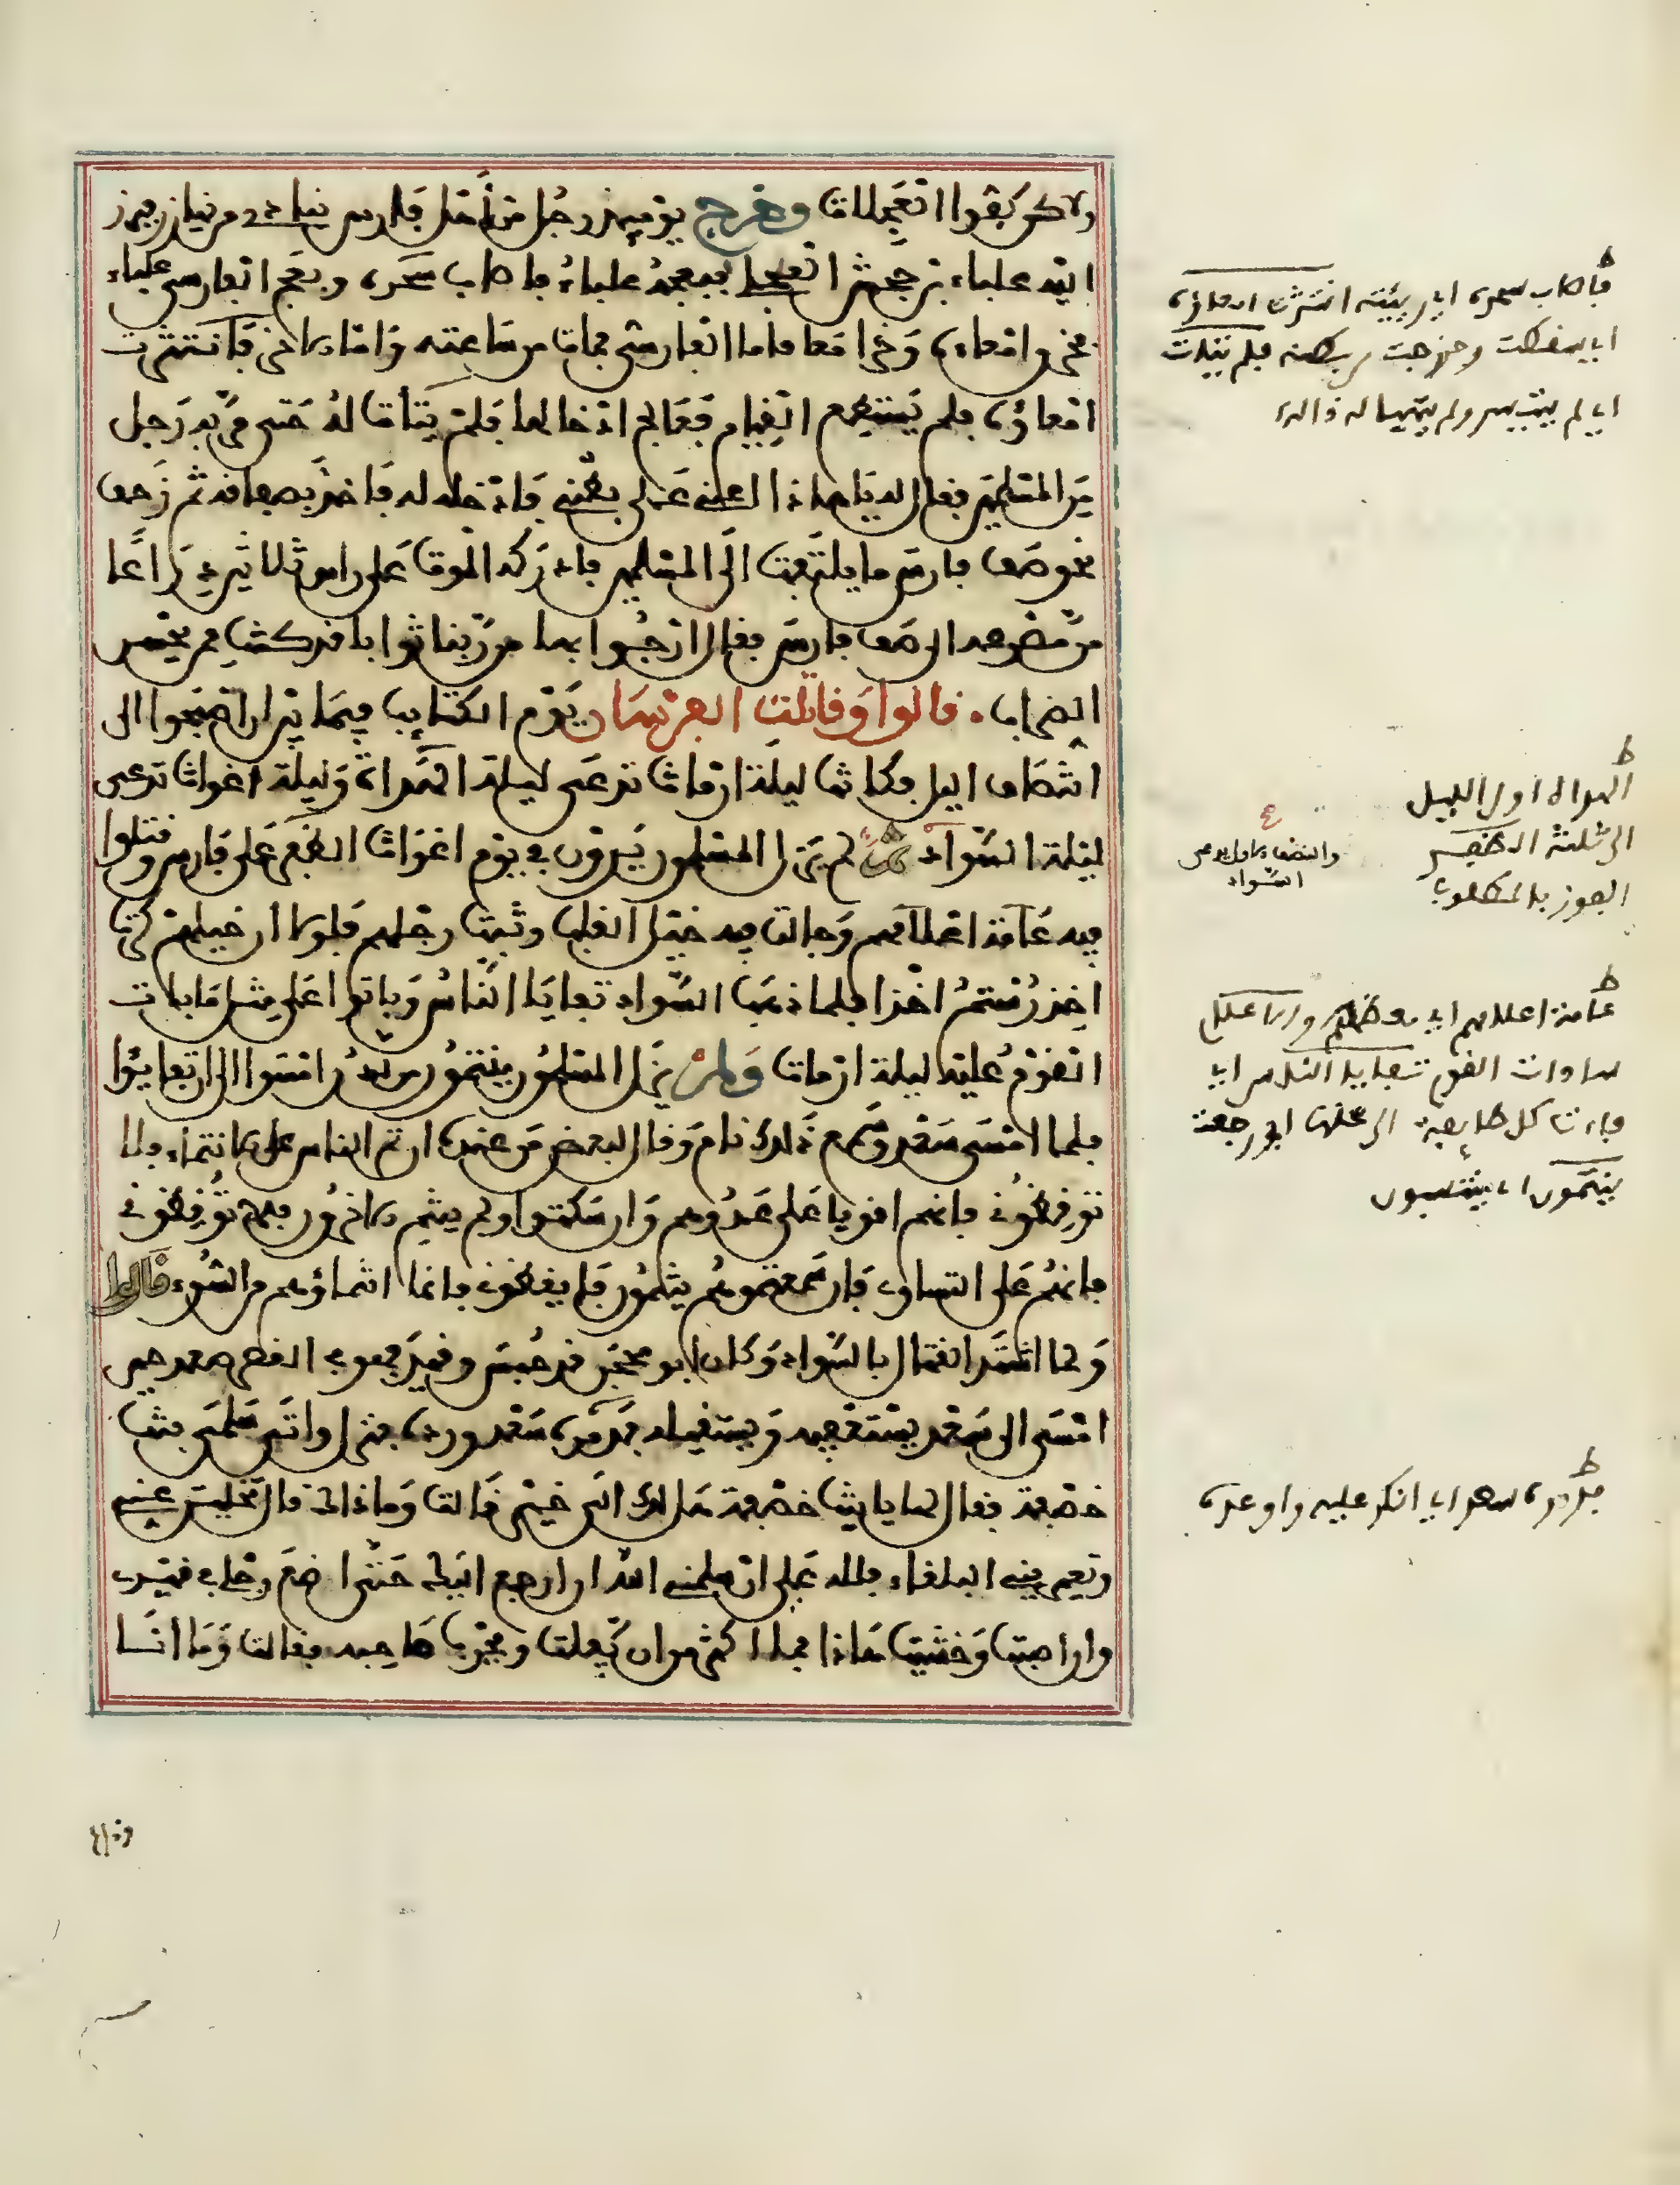 ولاكن بقوا العجلات وخرج يومئذ رجل من أهل فارس ينادي من يبارز فبرز
اليه علباء بن جحش العجلي فبعجه علباء فاصاب سحره وبعج الفارسي علباء
فخر وامعاءه وخرا معا فاما الفارسي فمات من ساعته واما الاخر فانتثرت
امعاؤه فلم يستطع القيام فعالج ادخالها فلم يتأت له حتى مر به رجل
من المسلمين فقال له يا هاذا اعني على بطني فادخله له فاخذ بصفاقه ثم زحف
نحو صف فارس ما يلتفت الى المسلمين فادركه الموت على راس ثلاثين ذراعا
من مصرعه الى صف فارس فقال ارجوا بها من ربنا ثوابا قد كنت ممن يحسن
الضرابا. قالوا وقاتلت الفرسان يوم الكتايب فيما بين ان اصبحوا الى
انتصاف اليل فكانت ليلة ارماث تدعى ليلة الهدأة وليلة اغواث تدعى
ليلة السواد ثم لم يزل المسلمون يرون في يوم اغواث الظفر على فارس وقتلوا
فيه عامة اعلامهم وجالت فيه خيل القلب وثبت رجلهم فلولا ان خيلهم كرت
اخذ رستم اخذا فلما ذهب السواد تفايا الناس وباتوا على مثل ما بات
القوم عليه ليلة ارماث ولم يزل المسلمون ينتمون من لدن امسوا الى ان تفايوا
فلما امسى سعد وسمع ذلك نام وقال لبعض من عنده ان تم الناس على الانتماء فلا
توقظوني فانهم اقويا على عدوهم وان سكتوا ولم ينتم الاخرون فلا توقظوني
فانهم على السواء فان سمعتموهم ينتمون فايقظوني فانما انتماؤهم من السوء قالوا
ولما اشتد القتال بالسواد وكان ابو محجن قد حبس وقيد فهو في القصر فصعد حين
امسى الى سعد يستعفيه ويستقيله فزبره سعد ورده فنزل واتى سلمى بنت
خصفة فقال لها يا بنت خصفة هل لك الى خير قالت وما ذاك قال تخلين عني
وتعيرينني البلقاء فلله علي ان سلمني الله ان ارجع اليك حتى اضع رجلي في قيدي
وان اصبت وخشيت هاذا فما اكثر من ان يفلت ونحو صاحبه فقالت وما انا
فاصاب سحره اي ريئته انتثرت امعاؤه
اي سقطت وخرجت من بطنه فلم يتات
اي لم يتيسر ولم يتهيا له ذالك
الهدأة اول الليل
الى ثلثه الظفر
الفوز بالمطلوب
والنصف الاول يدعى
السواد
عامة اعلامهم اي معظمهم والاعلام
سادات القوم تفايا الناس اي
فاءت كل طايفة الى محلها اي رجعت
ينتمون اي ينتسبون
فزبره سعد اي انكر عليه واوعده